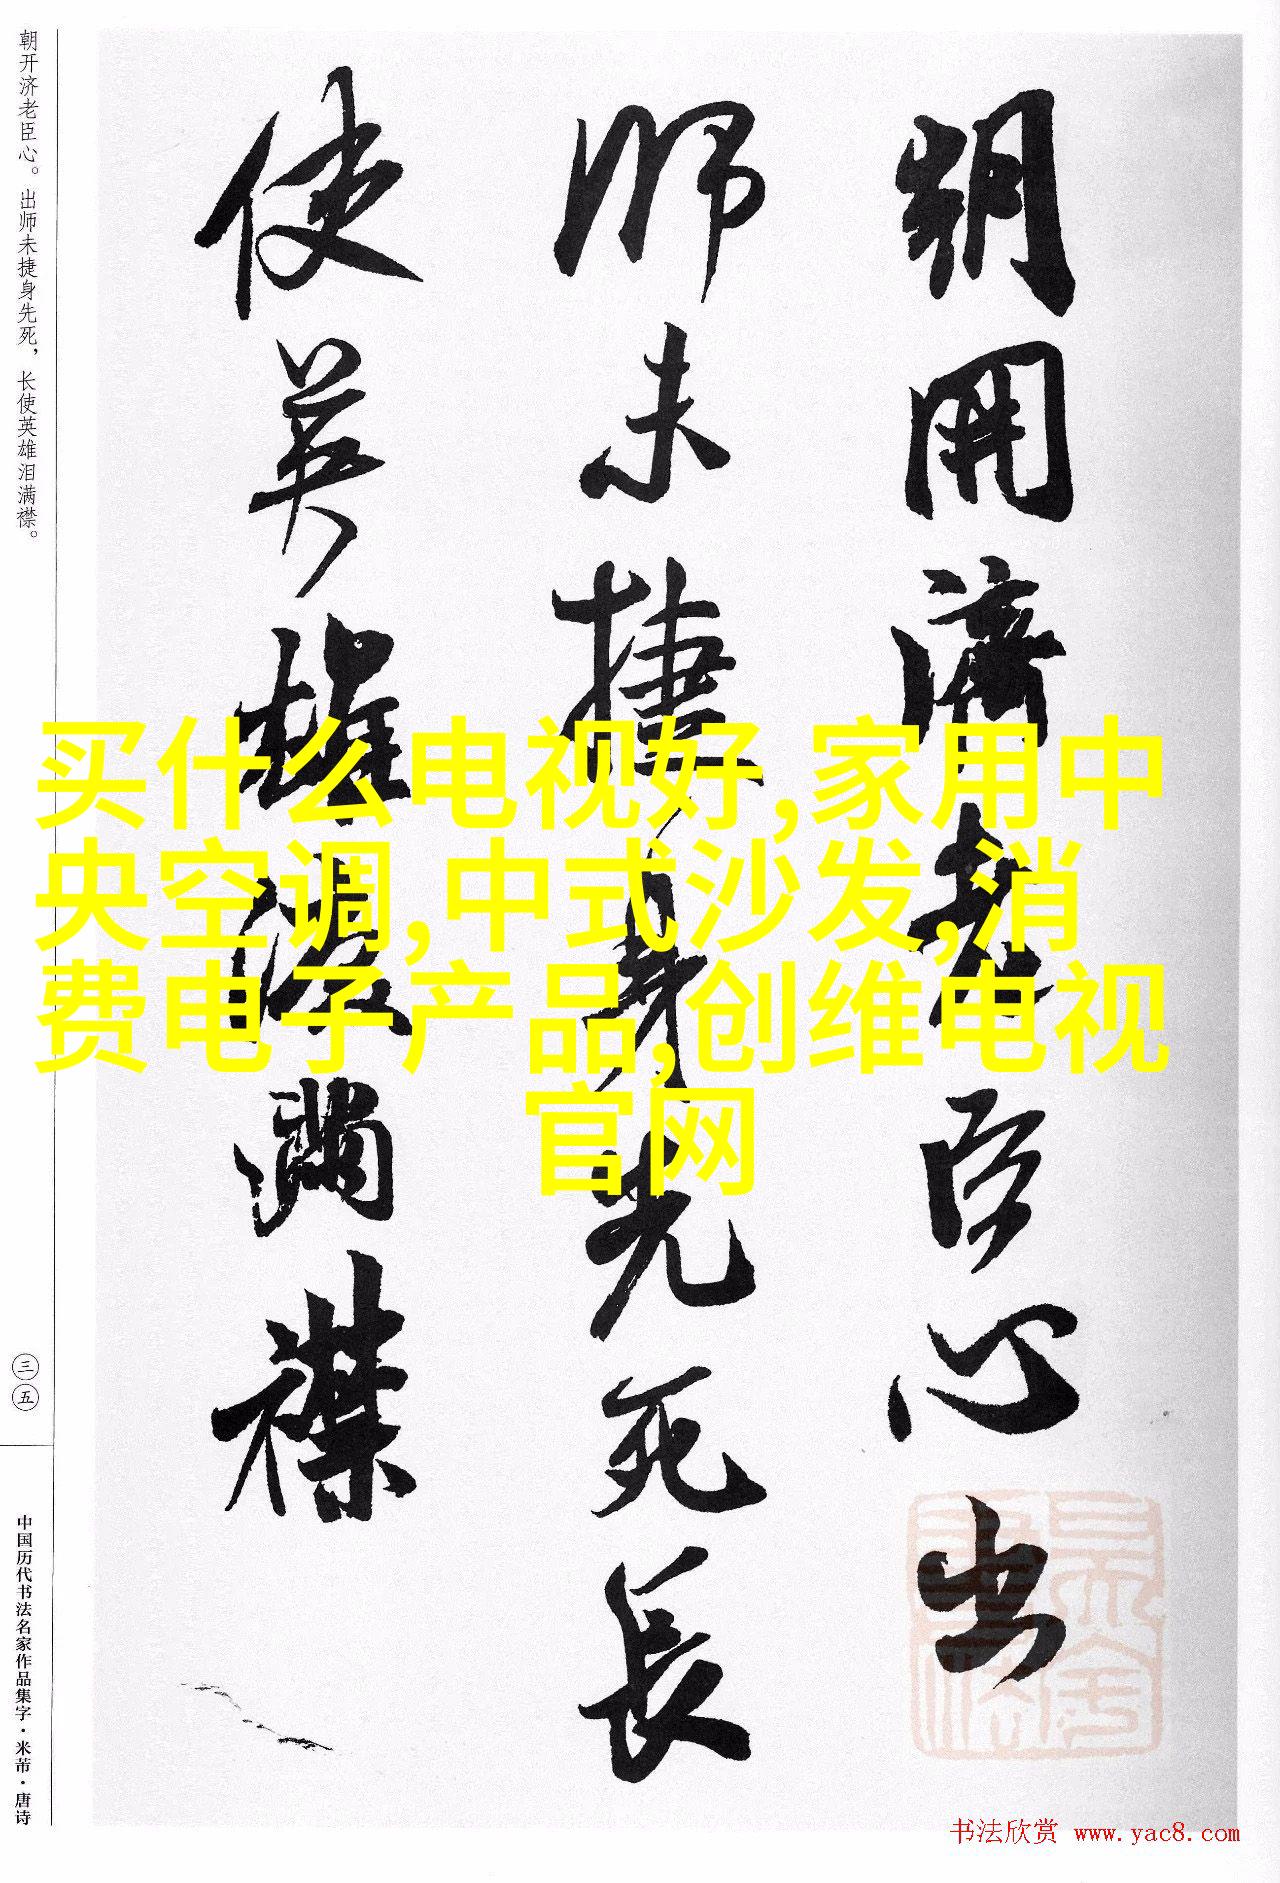 朝開濟老臣心出
師未捷身先死長
使英雄淚滿襟
朝开济老臣心。出师未捷身先死，长使英雄泪满襟。
三五
中国历代书法名家作品集字·米芾·唐诗
买什么电视好,家用中
央空调,中式沙发,消
费电子产品,创维电视
官网
书法欣赏 www.yac8.com